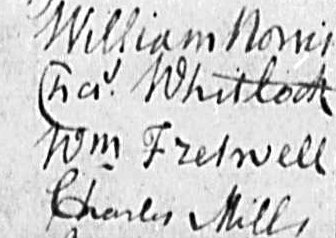 William Norris
Chas. Whitlock
Wm Fretwell
Charles Mills